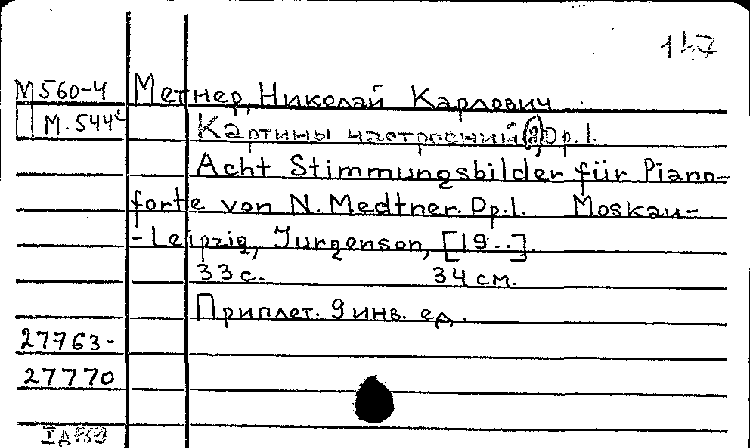 147
М560-4 Метнер, Николай Карлович
М.544с Картины настроений(8) Op.1.
Acht Stimmungsbilder für Piano-
forte von N. Medtner. Op.1. Moskau-
-Leipzig, Jurgenson, [19..].
33 с. 34 см.
Приплет. 9 инв. ед.
27763-
27770